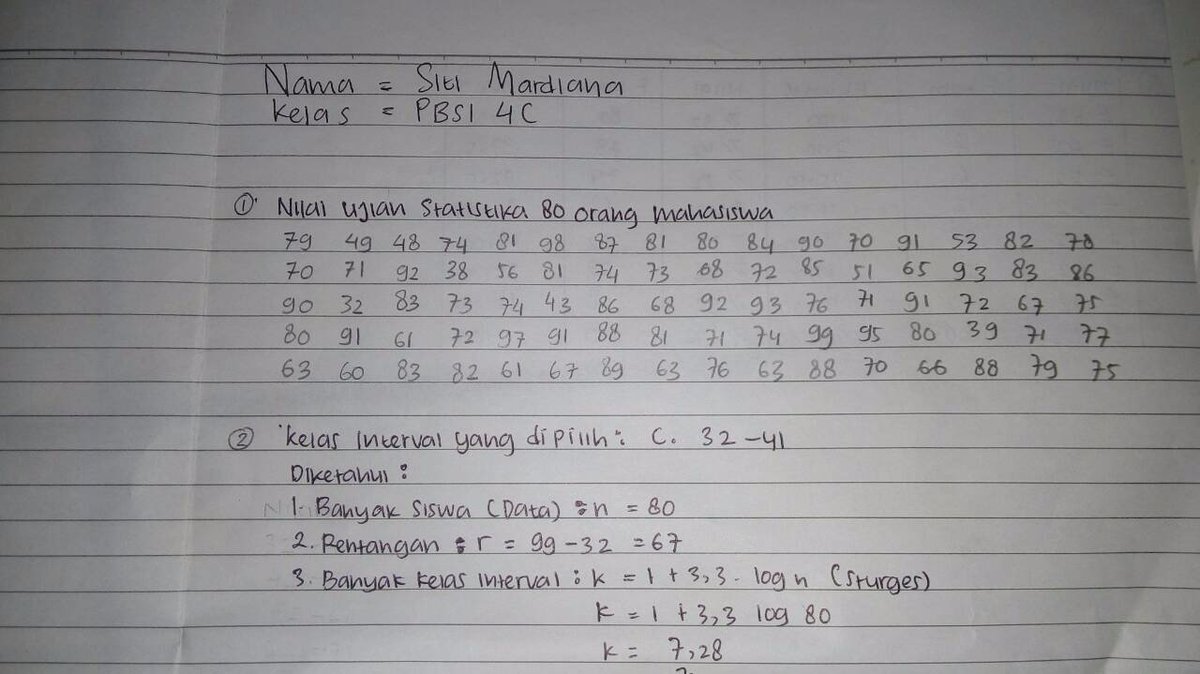 Nama = Siti Mardiana
Kelas = PBSI 4C
① Nilai ujian Statistika 80 orang mahasiswa
79 49 48 74 81 98 87 81 80 84 90 70 91 53 82 78
70 71 92 38 56 81 74 73 68 72 85 51 65 93 83 86
90 32 83 73 74 43 86 68 92 93 76 71 91 72 67 75
80 91 61 72 97 91 88 81 71 74 99 95 80 39 71 77
63 60 83 82 61 67 89 63 76 63 88 70 66 88 79 75
② Kelas interval yang dipilih : C. 32-41
Diketahui :
1. Banyak Siswa (Data) : n = 80
2. Rentangan : r = 99-32 = 67
3. Banyak kelas interval : k = 1 + 3,3 . log n (Sturges)
k = 1 + 3,3 log 80
k = 7,28